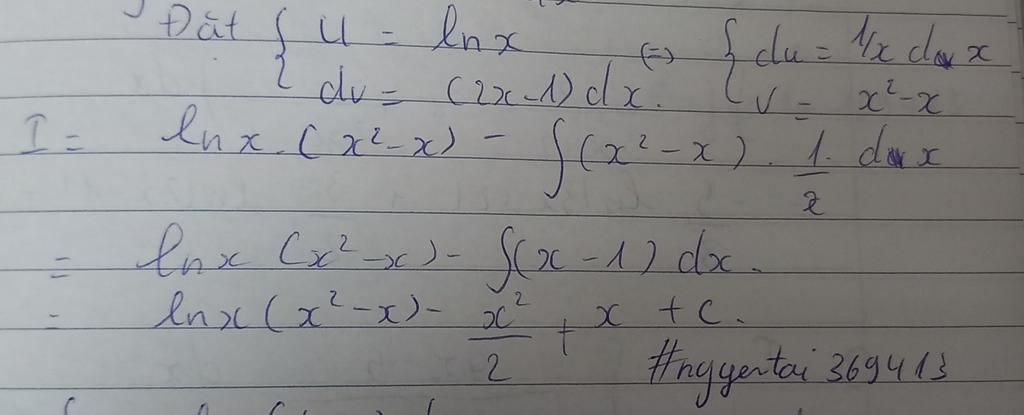 Đặt { u = lnx (=) { du = 1/x dx
dv = (2x-1)dx. v = x²-x
I = lnx.(x²-x) - ∫(x²-x).1/x.dx
= lnx(x²-x) - ∫(x-1)dx.
= lnx(x²-x) - x²/2 + x + C.
#nggyentai369413